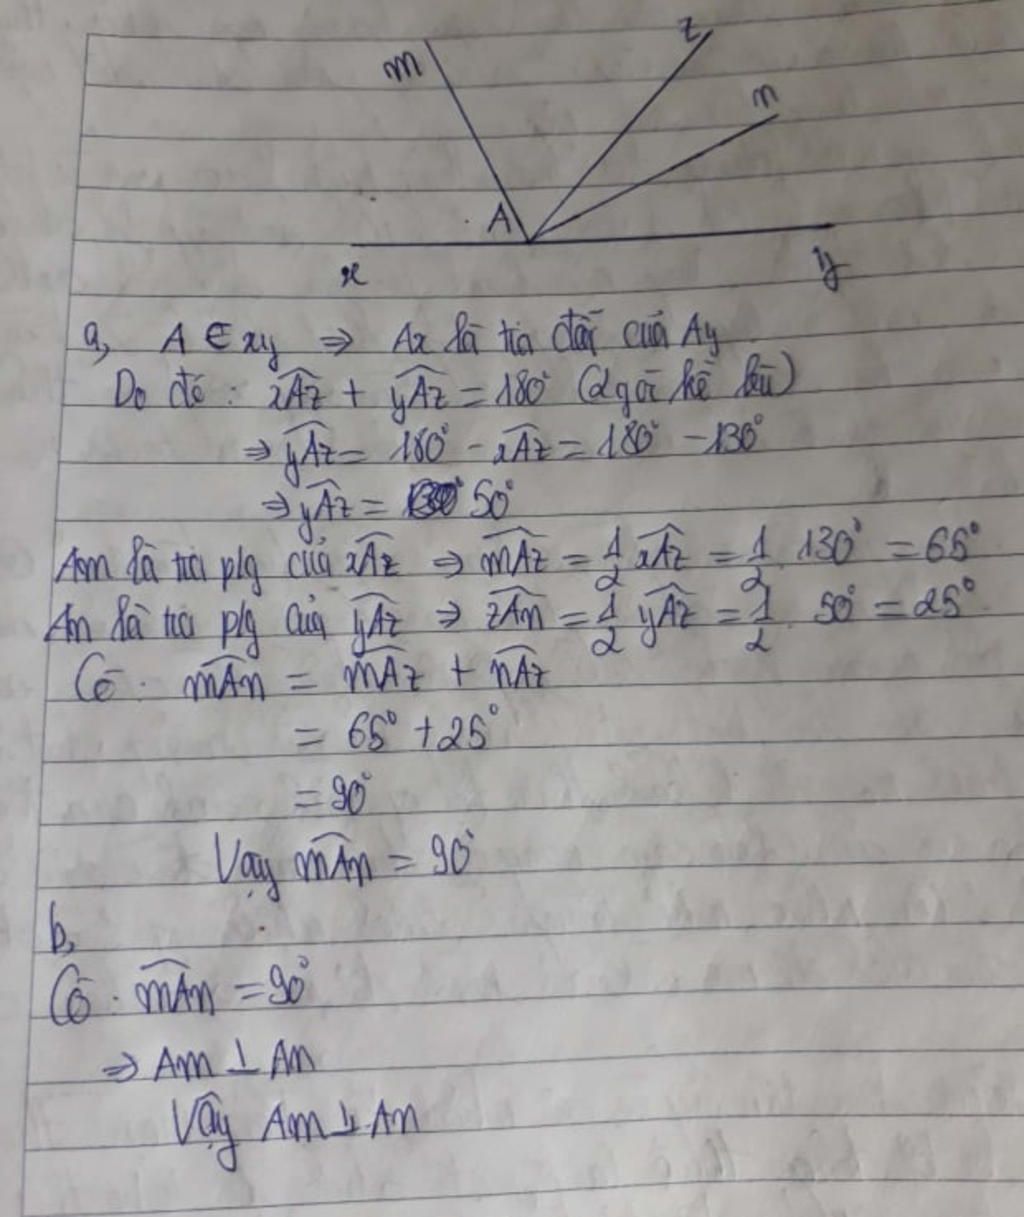 m
z
n
A
x
y
a, A ∈ xy ⇒ Ax là tia đối của Ay
Do đó: xAz + yAz = 180° (2 góc kề bù)
⇒ yAz = 180° - xAz = 180° - 130°
⇒ yAz = 50°
Am là tia p/g của xAz ⇒ mAz = 1/2 xAz = 1/2 . 130° = 65°
An là tia p/g của yAz ⇒ zAn = 1/2 yAz = 1/2 . 50° = 25°
Có: mAn = mAz + nAz
= 65° + 25°
= 90°
Vậy mAn = 90°
b,
Có: mAn = 90°
⇒ Am ⊥ An
Vậy Am ⊥ An